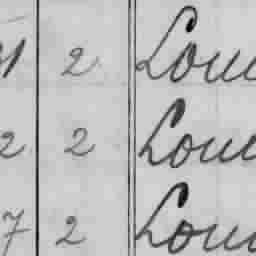 1 2 Lou
2 2 Lou
7 2 Lou